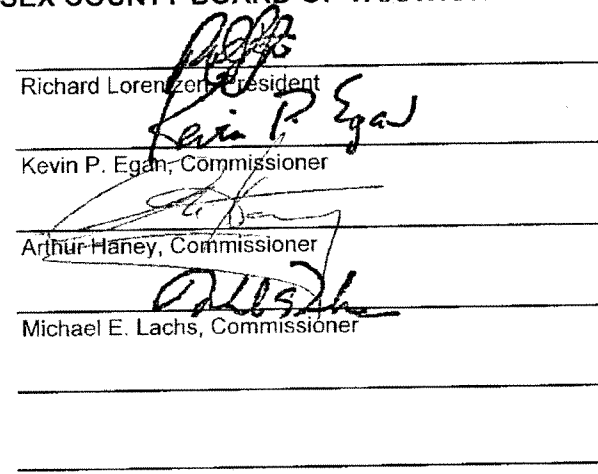 SEX COUNTY BOARD OF
Richard Lorentzen, President
Kevin P. Egan
Kevin P. Egan, Commissioner
Arthur Haney, Commissioner
Michael E. Lachs, Commissioner